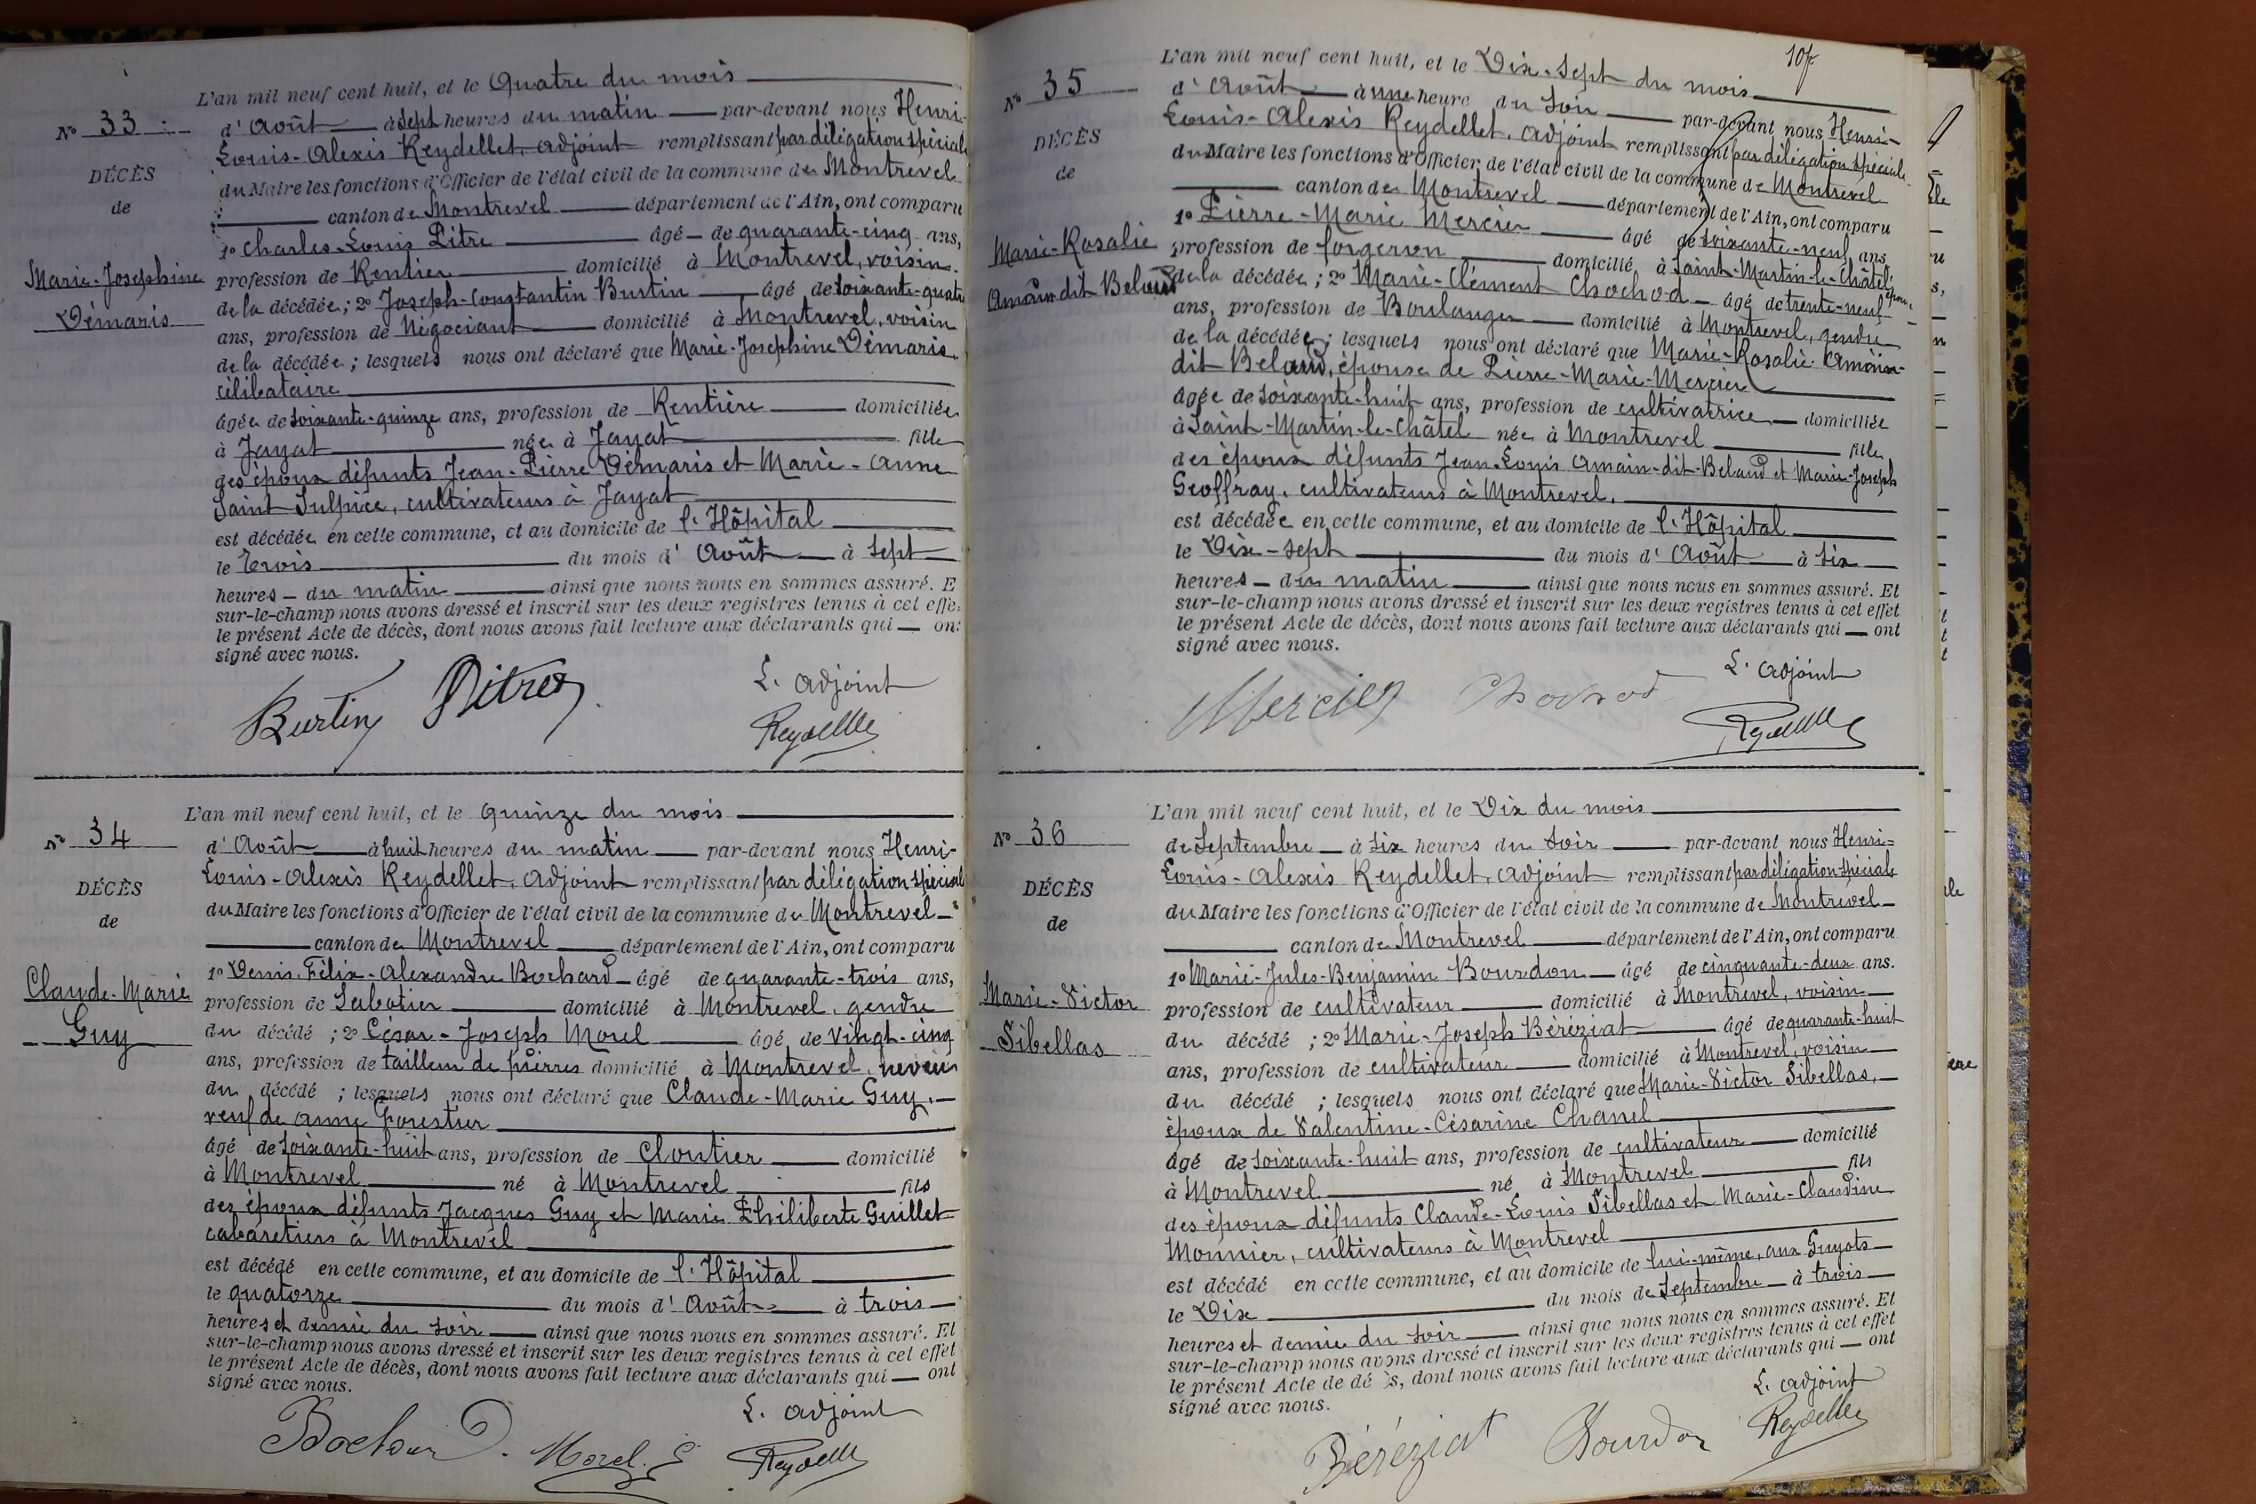 L'an mil neuf cent huit, et le Quatre du mois
N° 33
d'Août à sept heures du matin par-devant nous Henri-
Louis-Alexis Reydellet, adjoint remplissant par délégation spéciale
DÉCÈS
du Maire les fonctions d'Officier de l'état civil de la commune de Montrevel
de
canton de Montrevel département de l'Ain, ont comparu
1° Charles-Louis Pitre âgé de quarante-cinq ans,
Marie-Josephine
Démaris
profession de Rentier domicilié à Montrevel, voisin
de la décédée; 2° Joseph-Constantin Burtin âgé de soixante-quatre
ans, profession de Négociant domicilié à Montrevel, voisin
de la décédée; lesquels nous ont déclaré que Marie-Josephine Démaris
célibataire
âgée de soixante-quinze ans, profession de Rentière domiciliée
à Jayat née à Jayat fille
des époux défunts Jean-Pierre Démaris et Marie-Anne
Saint Sulpice, cultivateurs à Jayat
est décédée en cette commune, et au domicile de l'Hôpital
le Trois du mois d'Août à sept
heures du matin ainsi que nous nous en sommes assuré. E
sur-le-champ nous avons dressé et inscrit sur les deux registres tenus à cet effe
le présent Acte de décès, dont nous avons fait lecture aux déclarants qui on
signé avec nous.
L'adjoint
Burtin Pitre Reydellet
L'an mil neuf cent huit, et le quinze du mois
N° 34
d'Août à huit heures du matin par-devant nous Henri-
Louis-Alexis Reydellet, adjoint remplissant par délégation spéciale
DÉCÈS
du Maire les fonctions d'Officier de l'état civil de la commune de Montrevel
de
canton de Montrevel département de l'Ain, ont comparu
Claude-Marie
Guy
1° Denis-Félix-Alexandre Bochard âgé de quarante-trois ans,
profession de Sabotier domicilié à Montrevel, gendre
du décédé; 2° César-Joseph Morel âgé de vingt-cinq
ans, profession de tailleur de pierres domicilié à Montrevel, neveu
du décédé; lesquels nous ont déclaré que Claude-Marie Guy,
veuf de Anne Forestier
âgé de soixante-huit ans, profession de Cloutier domicilié
à Montrevel né à Montrevel fils
des époux défunts Jacques Guy et Marie Philiberte Guillet
cabaretiers à Montrevel
est décédé en cette commune, et au domicile de l'Hôpital
le quatorze du mois d'Août à trois
heures et demie du soir ainsi que nous nous en sommes assuré. Et
sur-le-champ nous avons dressé et inscrit sur les deux registres tenus à cet effet
le présent Acte de décès, dont nous avons fait lecture aux déclarants qui ont
signé avec nous.
L'adjoint
Bochard Morel Reydellet
L'an mil neuf cent huit, et le Dix-sept du mois
N° 35
d'Août à une heure du soir par-devant nous Henri-
Louis-Alexis Reydellet, adjoint remplissant par délégation spéciale
DÉCÈS
du Maire les fonctions d'Officier de l'état civil de la commune de Montrevel
de
canton de Montrevel département de l'Ain, ont comparu
1° Pierre-Marie Mercier âgé de soixante-neuf ans,
Marie-Rosalie
Amain dit Belaud
profession de forgeron domicilié à Saint-Martin-le-Châtel, époux
de la décédée; 2° Marie-Clément Chochod âgé de trente-neuf
ans, profession de Boulanger domicilié à Montrevel, gendre
de la décédée; lesquels nous ont déclaré que Marie-Rosalie Amain-
dit Belaud, épouse de Pierre-Marie-Mercier
âgée de soixante-huit ans, profession de cultivatrice domiciliée
à Saint-Martin-le-Châtel née à Montrevel fille
des époux défunts Jean-Louis Amain-dit-Belaud et Marie-Joseph
Geoffray, cultivateurs à Montrevel.
est décédée en cette commune, et au domicile de l'Hôpital
le Dix-sept du mois d'Août à six
heures du matin ainsi que nous nous en sommes assuré. Et
sur-le-champ nous avons dressé et inscrit sur les deux registres tenus à cet effet
le présent Acte de décès, dont nous avons fait lecture aux déclarants qui ont
signé avec nous.
L'adjoint
Mercier Chochod Reydellet
L'an mil neuf cent huit, et le Dix du mois
N° 36
de Septembre à six heures du soir par-devant nous Henri-
Louis-Alexis Reydellet, adjoint remplissant par délégation spéciale
DÉCÈS
du Maire les fonctions d'Officier de l'état civil de la commune de Montrevel
de
canton de Montrevel département de l'Ain, ont comparu
1° Marie-Jules-Benjamin Bourdon âgé de cinquante-deux ans.
Marie-Victor
Sibellas
profession de cultivateur domicilié à Montrevel, voisin
du décédé; 2° Marie-Joseph Béréziat âgé de quarante-huit
ans, profession de cultivateur domicilié à Montrevel, voisin
du décédé; lesquels nous ont déclaré que Marie-Victor Sibellas,
époux de Valentine-Césarine Chanel
âgé de soixante-huit ans, profession de cultivateur domicilié
à Montrevel né à Montrevel fils
des époux défunts Claude-Louis Sibellas et Marie-Claudine
Monnier, cultivateurs à Montrevel
est décédé en cette commune, et au domicile de lui-même, aux Guyots
le Dix du mois de Septembre à trois
heures et demie du soir ainsi que nous nous en sommes assuré. Et
sur-le-champ nous avons dressé et inscrit sur les deux registres tenus à cet effet
le présent Acte de dé s, dont nous avons fait lecture aux déclarants qui ont
signé avec nous.
L'adjoint
Béréziat Bourdon Reydellet